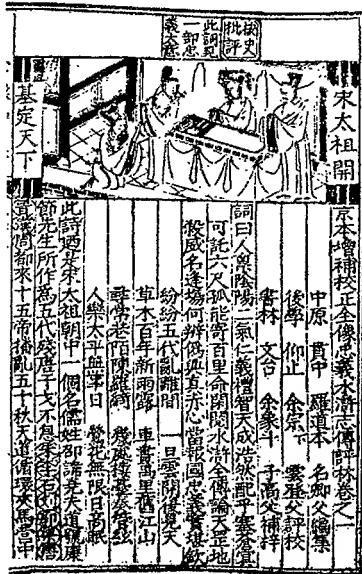 按史
批評
此詞見
一部忠
義意
宋太祖開
基定天下
京本增補校正全像忠義水滸志傳評林卷之一
中原 貫中 羅道本 名卿父編集
後學 仰止 余宗下 雲登父評校
書林 文台 余象斗 子高父補梓
詞曰人稟陰陽二氣仁義禮智天成浩然配乎塞蒼冥
可託六尺孤能寄百里命閱水滸全傳論天正地
殺威名逢場何辨偽與真赤心當報國忠義實堪欽
紛紛五代亂離間 一旦雲開復見天
草木百年新雨露 車書萬里舊江山
尋常巷陌陳羅綺 幾處樓臺奏管絃
人樂太平無事日 鶯花無限日高眠
此詩迺是宋太祖朝中一個名儒姓邵諱堯夫道號康
節先生所作為五代殘唐干戈不息朱李石劉郭梁唐
晉漢周都來十五帝播亂五十秋天道循環來馬營中